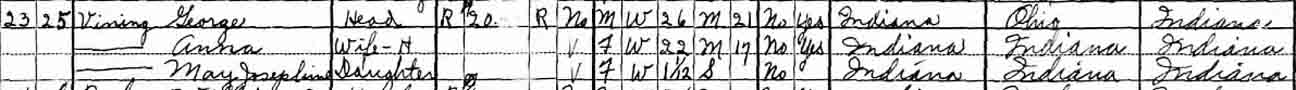 23 25 Vining George Head R 20. R No M W 26 M 21 No Yes Indiana Ohio Indiana
Anna Wife-H V F W 22 M 17 No Yes Indiana Indiana Indiana
May Josephine Daughter V F W 1/12 S No Indiana Indiana Indiana